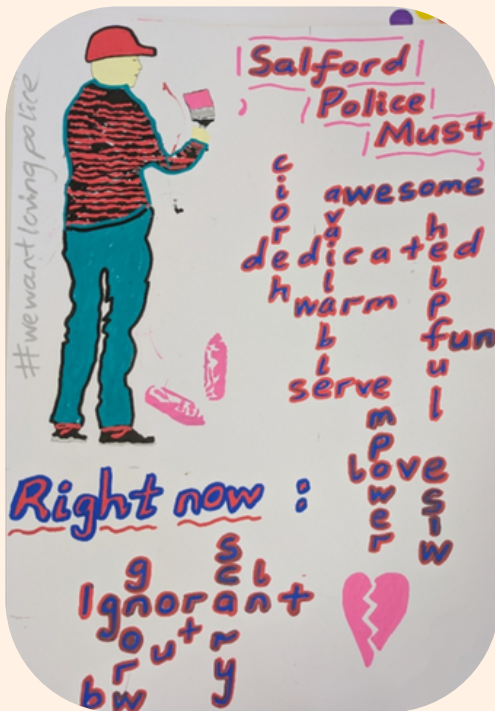 #wewantlovingpolice
Salford
Police
Must
heroic
awesome
available
dedicated
helpful
warm
fun
serve
empower
love
wise
Right now :
Ignorant
wrong
brutal
scary